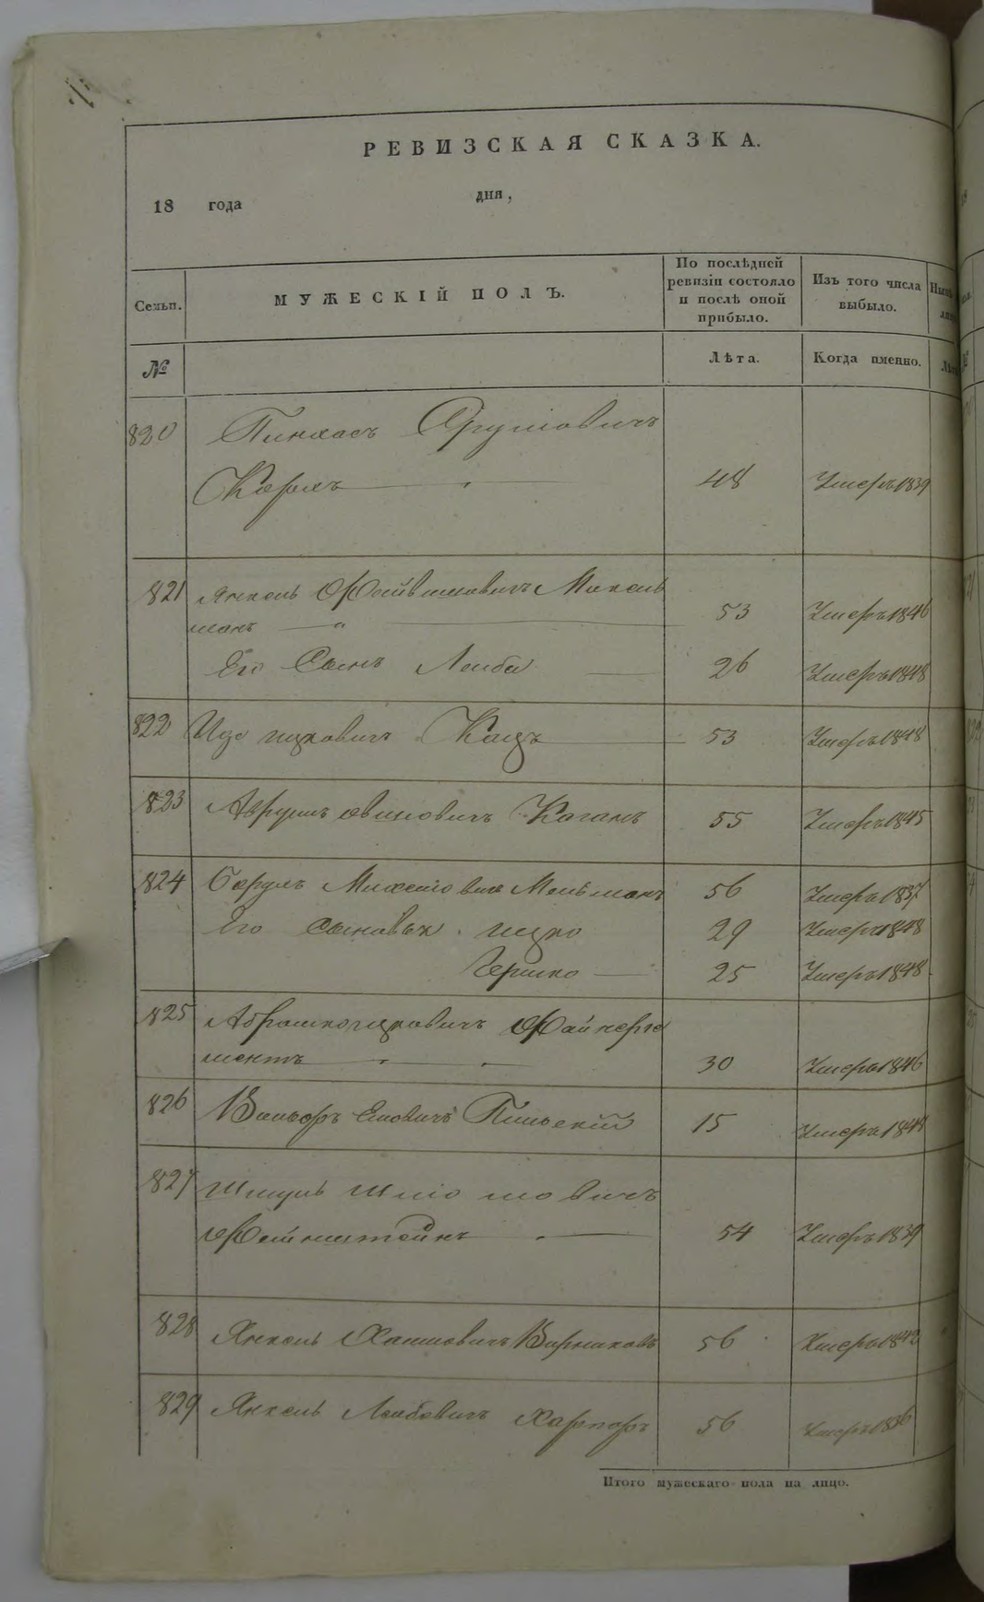 РЕВИЗСКАЯ СКАЗКА.
18 года дня,
Семьи. МУЖЕСКІЙ ПОЛЪ. По послѣдней ревизіи состояло и послѣ оной прибыло. Изъ того числа выбыло.
№ Лѣта. Когда именно.
820 Пинхасъ Сруліовичъ
48 Умеръ 1839
821 Янкель Фейвишовичъ
манъ 53 Умеръ 1846
Его Сынъ Лейба 26 Умеръ 1848
822 Ицко Ицковичъ Кацъ 53 Умеръ 1848
823 Аврумъ Овшіовичъ Каганъ 55 Умеръ 1845
824 Сруль Мельманъ 56 Умеръ 1837
Его сыновья Ицко 29 Умеръ 1848
Гершко 25 Умеръ 1848
825 Абрамко Ицковичъ Файнерго
ментъ 30 Умеръ 1846
826 Пильскій 15 Умеръ 1844
827 Шмуль Шліомовичъ
Фейнштейнъ 54 Умеръ 1839
828 Янкель Хаимовичъ 56 Умеръ 1842
829 Янкель Лейбовичъ 56 Умеръ 1836
Итого мужескаго пола на лицо.